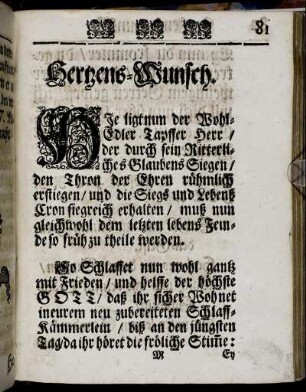 81
Hertzens-Wunsch.
HJe ligt nun der Wohl-
Edler Tapffer Herr /
der durch sein Ritterli-
ches Glaubens Siegen /
den Thron der Ehren rühmlich
erstiegen / und die Siegs und Lebens
Cron siegreich erhalten / muß nun
gleichwohl dem letzten lebens Fein-
de so früh zu theile werden.
So Schlaffet nun wohl gantz
mit Frieden / und helffe der höchste
GOTT / daß ihr sicher Wohnet
in eurem neu zubereiteten Schlaff-
Kämmerlein / biß an den jüngsten
Tag / da ihr höret die fröliche Stim̃e:
M Ey